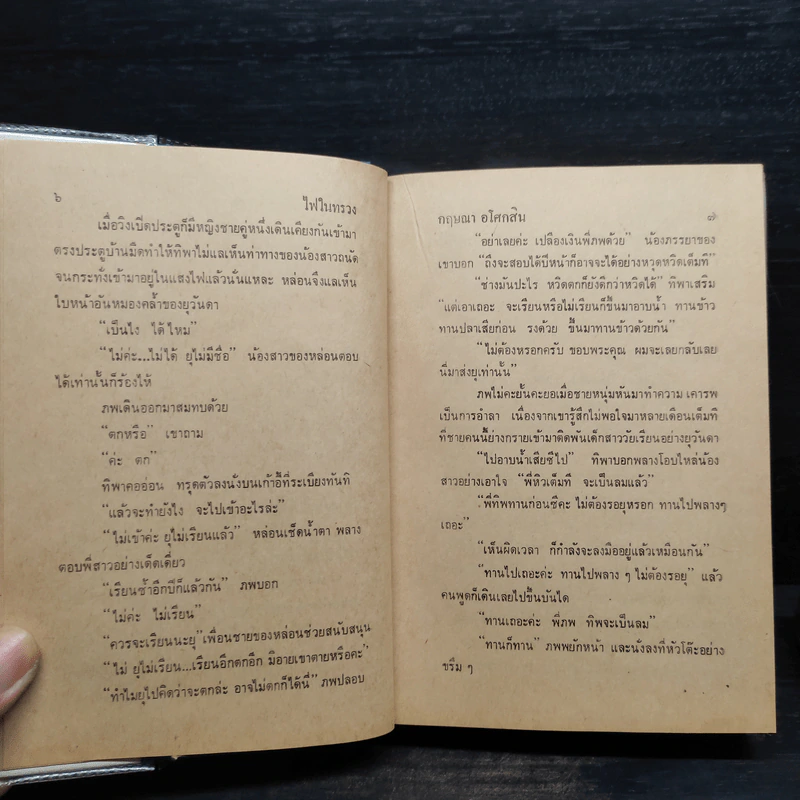 ๖
ไฟในทรวง
เมื่อวิ่งเปิดประตูก็มีหญิงชายคู่หนึ่งเดินเคียงกันเข้ามา
ตรงประตูบ้านมืดทำให้ทิพาไม่แลเห็นท่าทางของน้องสาวถนัด
จนกระทั่งเข้ามาอยู่ในแสงไฟแล้วนั่นแหละ หล่อนจึงแลเห็น
ใบหน้าอันหมองคล้ำของยุวันดา
“เป็นไง ได้ไหม”
“ไม่ค่ะ...ไม่ได้ ยุไม่มีชื่อ” น้องสาวของหล่อนตอบ
ได้เท่านั้นก็ร้องไห้
ภพเดินออกมาสมทบด้วย
“ตกหรือ” เขาถาม
“ค่ะ ตก”
ทิพาคออ่อน ทรุดตัวลงนั่งบนเก้าอี้ที่ระเบียงทันที
“แล้วจะทำยังไง จะไปเข้าอะไรล่ะ”
“ไม่เข้าค่ะ ยุไม่เรียนแล้ว” หล่อนเช็ดน้ำตา พลาง
ตอบพี่สาวอย่างเด็ดเดี่ยว
“เรียนซ้ำอีกปีก็แล้วกัน” ภพบอก
“ไม่ค่ะ ไม่เรียน”
“ควรจะเรียนนะยุ” เพื่อนชายของหล่อนช่วยสนับสนุน
“ไม่ ยุไม่เรียน...เรียนอีกตกอีก มิอายเขาตายหรือคะ”
“ทำไมยุไปคิดว่าจะตกล่ะ อาจไม่ตกก็ได้นี่” ภพปลอบ
กฤษณา อโศกสิน
๗
“อย่าเลยค่ะ เปลืองเงินพี่ภพด้วย” น้องภรรยาของ
เขาบอก “ถึงจะสอบได้ปีหน้าก็อาจจะได้อย่างหวุดหวิดเต็มที”
“ช่างมันปะไร หวิดตกก็ยังดีกว่าหวิดได้” ทิพาเสริม
“แต่เอาเถอะ จะเรียนหรือไม่เรียนก็ขึ้นมาอาบน้ำ ทานข้าว
ทานปลาเสียก่อน รงด้วย ขึ้นมาทานข้าวด้วยกัน”
“ไม่ต้องหรอกครับ ขอบพระคุณ ผมจะเลยกลับเลย
นี่มาส่งยุเท่านั้น”
ภพไม่คะยั้นคะยอเมื่อชายหนุ่มหันมาทำความ เคารพ
เป็นการอำลา เนื่องจากเขารู้สึกไม่พอใจมาหลายเดือนเต็มที
ที่ชายคนนี้ย่างกรายเข้ามาติดพันเด็กสาววัยเรียนอย่างยุวันดา
“ไปอาบน้ำเสียซีไป” ทิพาบอกพลางโอบไหล่น้อง
สาวอย่างเอาใจ “พี่หิวเต็มที่ จะเป็นลมแล้ว”
“พี่ทิพทานก่อนซีคะ ไม่ต้องรอยุหรอก ทานไปพลางๆ
เถอะ”
“เห็นผิดเวลา ก็กำลังจะลงมืออยู่แล้วเหมือนกัน”
“ทานไปเถอะค่ะ ทานไปพลาง ๆ ไม่ต้องรอยุ” แล้ว
คนพูดก็เดินเลยไปขึ้นบันได
“ทานเถอะค่ะ พี่ภพ ทิพจะเป็นลม”
“ทานก็ทาน” ภพพยักหน้า และนั่งลงที่หัวโต๊ะอย่าง
ขรึม ๆ